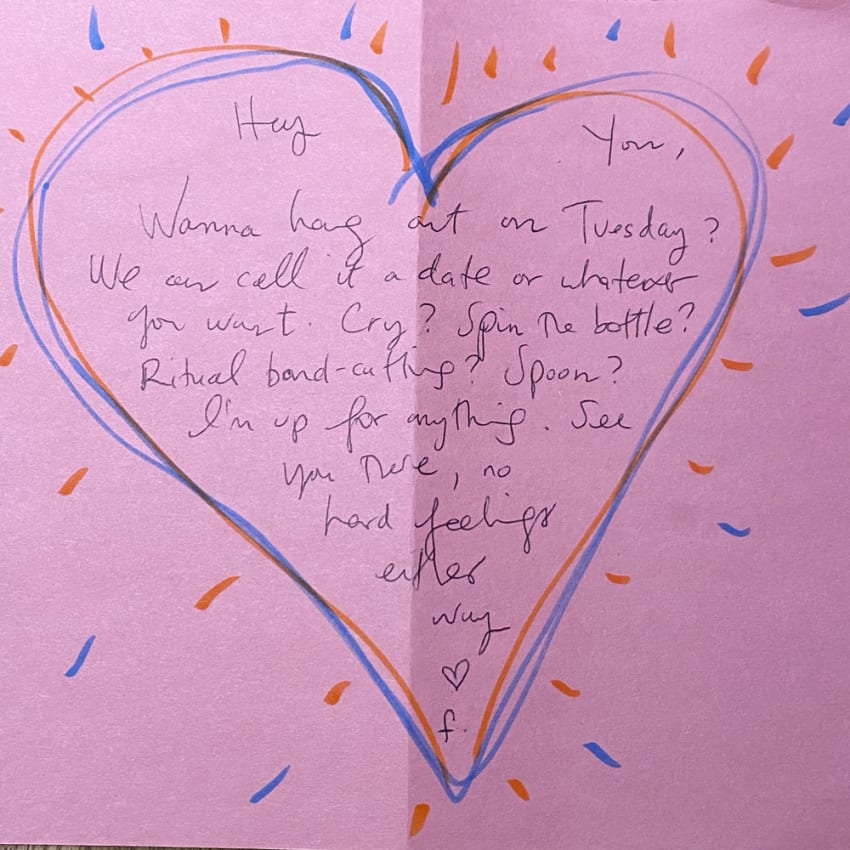 Hey You,
Wanna hang out on Tuesday?
We can call it a date or whatever
you want. Cry? Spin the bottle?
Ritual bond-cutting? Spoon?
I'm up for anything. See
you there, no
hard feelings
either
way
♡
f.